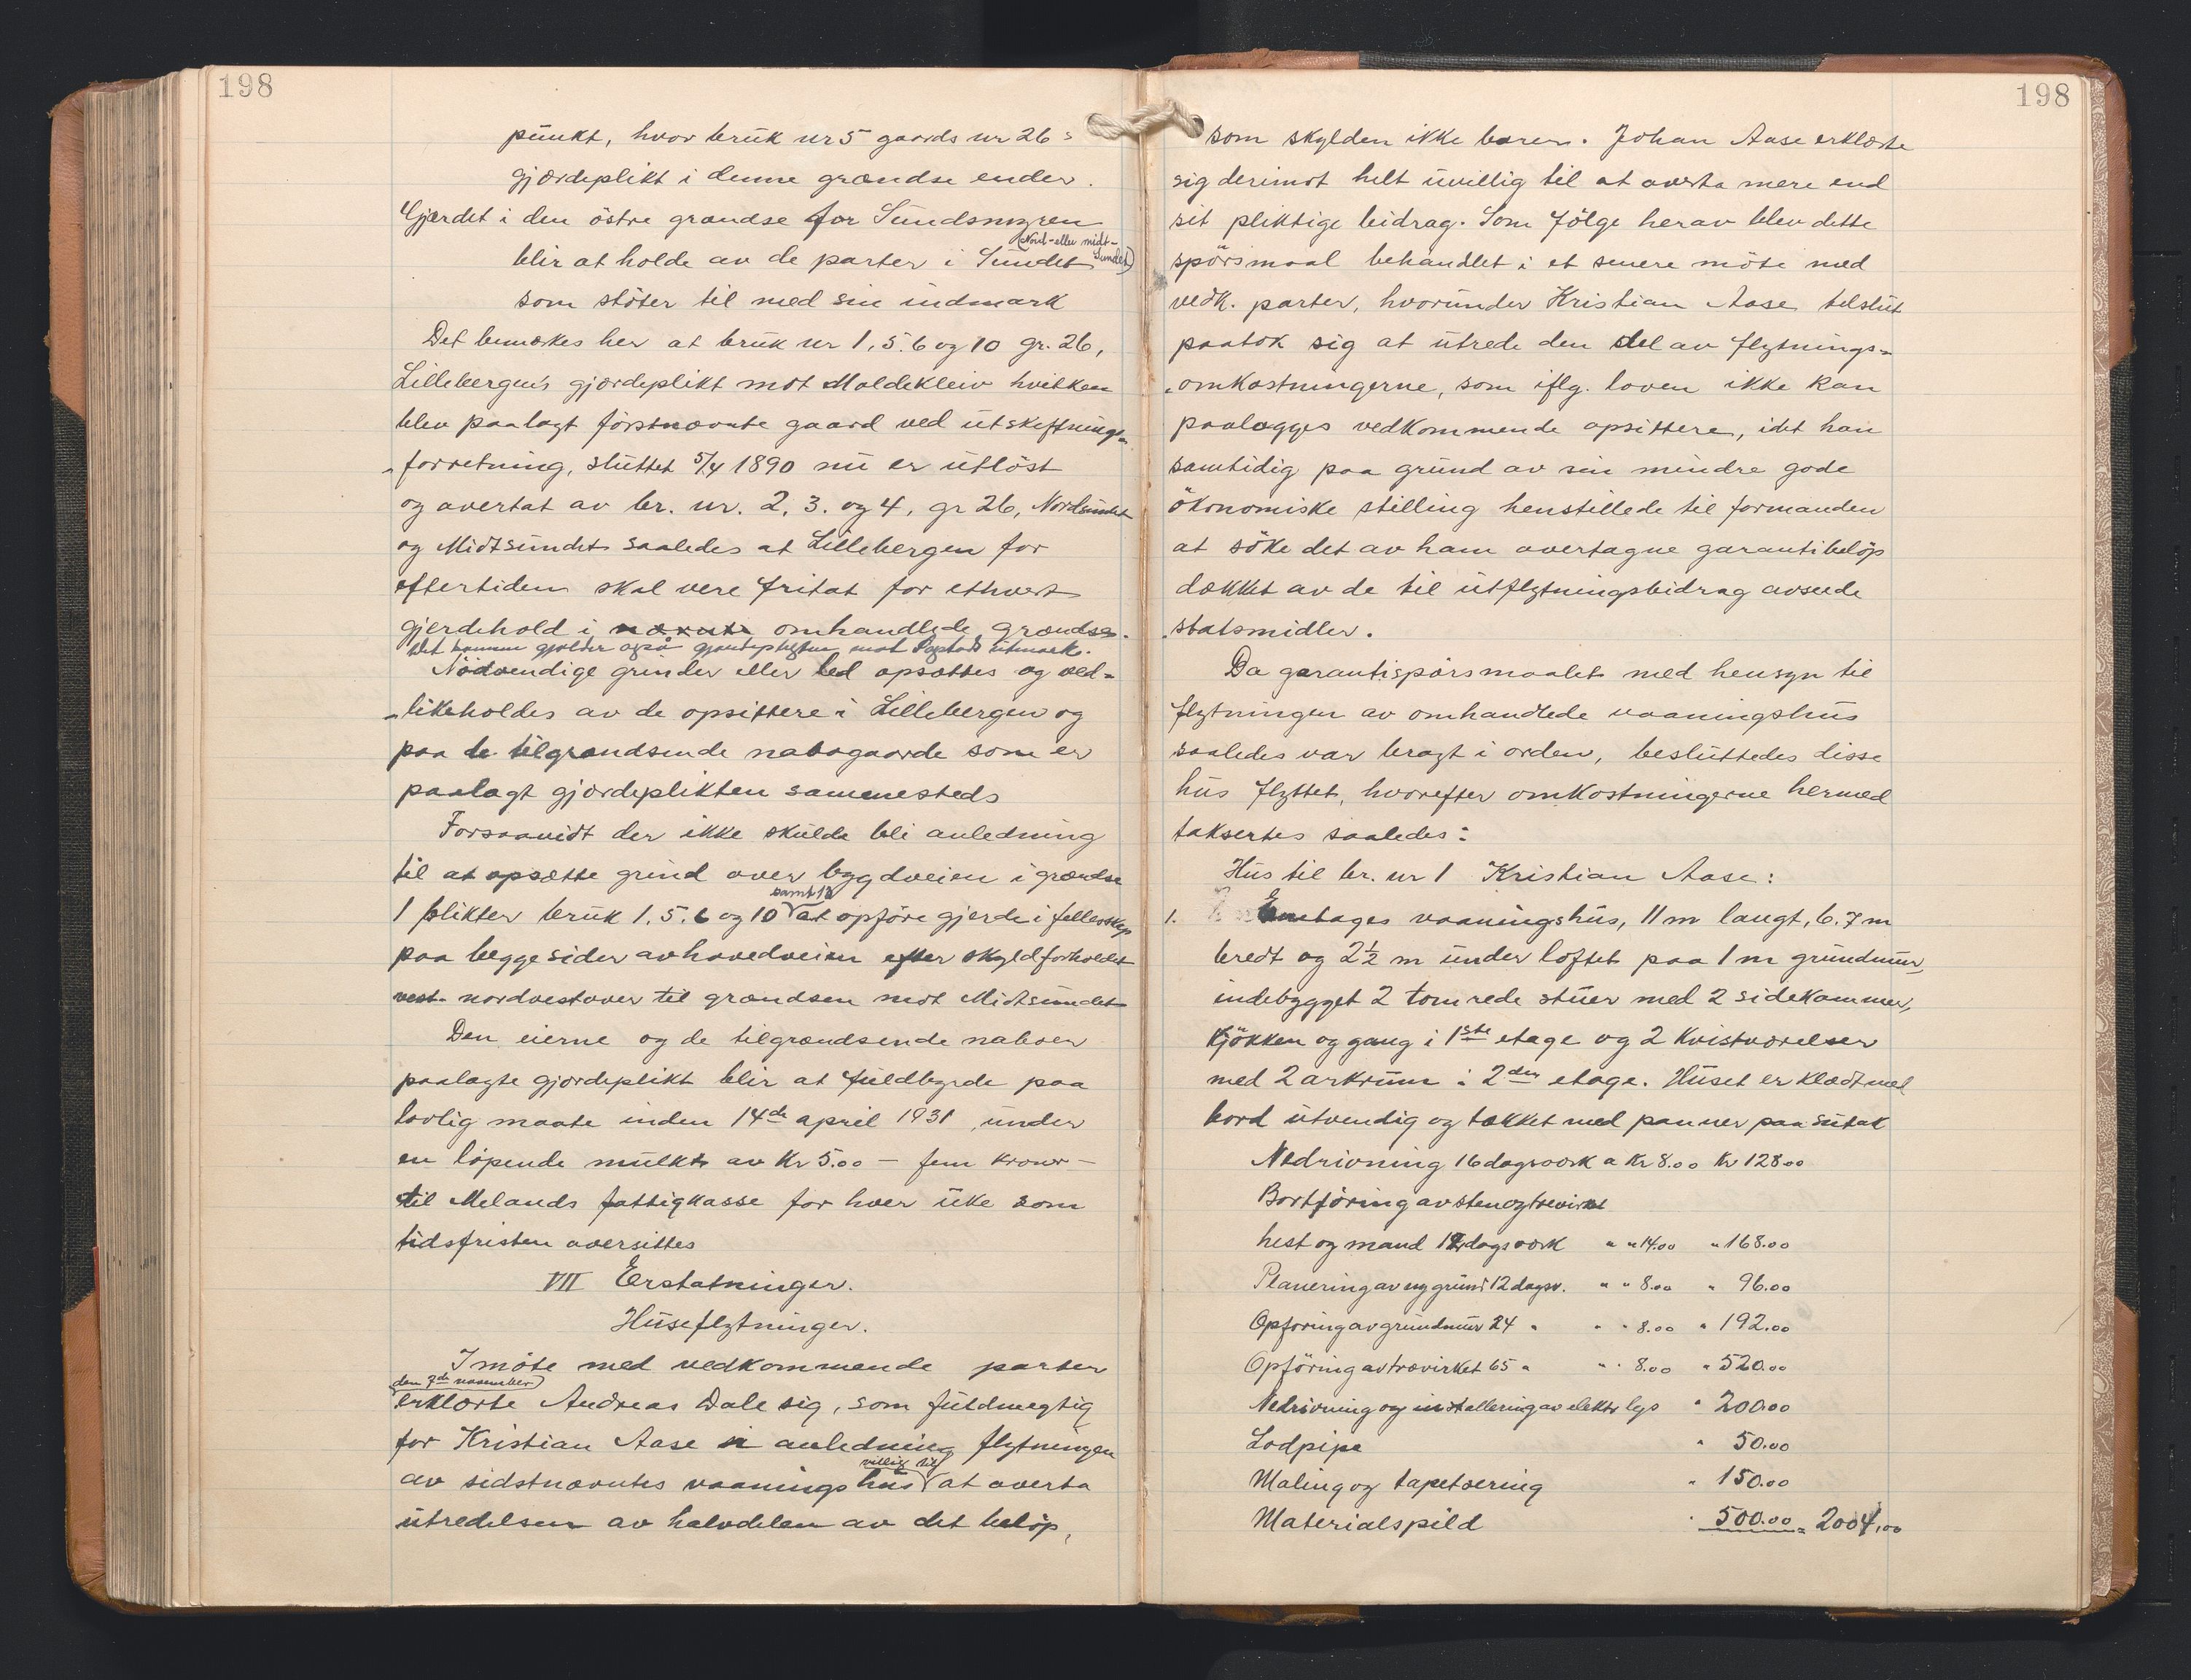 198
punkt, hvor bruk nr 5 gaards nr 26s
gjærdeplikt i denne grændse ender.
Gjerdet i den östre grændse for Sundsmyren
(Nord- eller midt-
blir at holde av de parter i Sundet Sundet)
som stöter til med sin indmark
Det bemerkes her at bruk nr 1, 5. 6 og 10 gr. 26,
Lillebergens gjærdeplikt mot Moldekleiv hvilken
blev paalagt förstnævnte gaard ved utskiftnings-
-forretning, sluttet 5/4 1890 nu er utlöst
og overtat av br. nr. 2, 3. og 4, gr 26, Nordsundet
og Midtsundet saaledes at Lillebergen for
eftertiden skal vere fritat for ethvert
gjerdehold i nævnte omhandlede grændse.
Det samme gjælder også gjærdeplikten mot Rogstads utmark.
Nödvendige grinder eller led opsættes og ved-
-likeholdes av de opsittere i Lillebergen og
paa de tilgrændsende nabogaarde som er
paalagt gjærdeplikten sammesteds
Forsaavidt der ikke skulde bli anledning
til at opsætte grind over bygdveien i grændse
samt 12
1 plikter bruk 1. 5. 6 og 10 at opföre gjerde i felleskap
paa begge sider av hovedveien efter skyldforholdet
vest- nordvestover til grændsen mot Midtsundet
Den eierne og de tilgrændsende naboer
paalagte gjærdeplikt blir at fuldbyrde paa
lovlig maate inden 14de april 1931 under
en löpende mulkt av Kr 5.00 – fem kroner –
til Melands fattigkasse for hver uke som
tidsfristen oversittes
VII Erstatninger.
Huseflytninger.
I möte med vedkommende parter
den 7de november
erklærte Andreas Dale sig, som fuldmegtig
for Kristian Aase i anledning flytningen
villig til
av sidstnævntes vaaningshus at overta
utredelsen av halvdelen av det belöp,
198
som skylden ikke bærer. Johan Aase erklærte
sig derimot helt uvillig til at overta mere end
sit pliktige bidrag. Som fölge herav blev dette
spörsmaal behandlet i et senere möte med
vedk. parter, hvorunder Kristian Aase tilslut
paatok sig at utrede den del av flytnings-
-omkostningerne, som iflg. loven ikke kan
paalægges vedkommende opsittere, idet han
samtidig paa grund av sin mindre gode
ökonomiske stilling henstillede til formanden
at söke det av ham overtagne garantibelöp
dækket av de til utflytningsbidrag avseede
statsmidler.
Da garantispörsmaalet med hensyn til
flytningen av omhandlede vaaningshus
saaledes var bragt i orden, besluttedes disse
hus flyttet, hvorefter omkostningerne hermed
taksertes saaledes:
Hus til br. nr 1 Kristian Aase:
1. Enetages vaaningshus, 11 m langt, 6.7 m
bredt og 2½ m under loftet paa 1 m grundmur,
indebygget 2 tömrede stuer med 2 sidekammer,
kjökken og gang i 1ste etage og 2 kvistværelser
med 2 arkrum i 2den etage. Huset er klædt med
bord utvendig og tækket med panner paa sutak
Nedrivning 16 dagsværk a Kr 8.00 Kr 128.00
Bortföring av sten og trevirket
hest og mand 12 dagsværk " " 14.00 " 168.00
Planering av ny grund 12 dagsv. " " 8.00 " 96.00
Opföring av grundmur 24 " " " 8.00 " 192.00
Opföring av trævirket 65 " " " 8.00 " 520.00
Nedrivning og installering av elektr lys " 200.00
Lodpipe " 50.00
Maling og tapetsering " 150.00
Materialspild " 500.00 = 2004,00